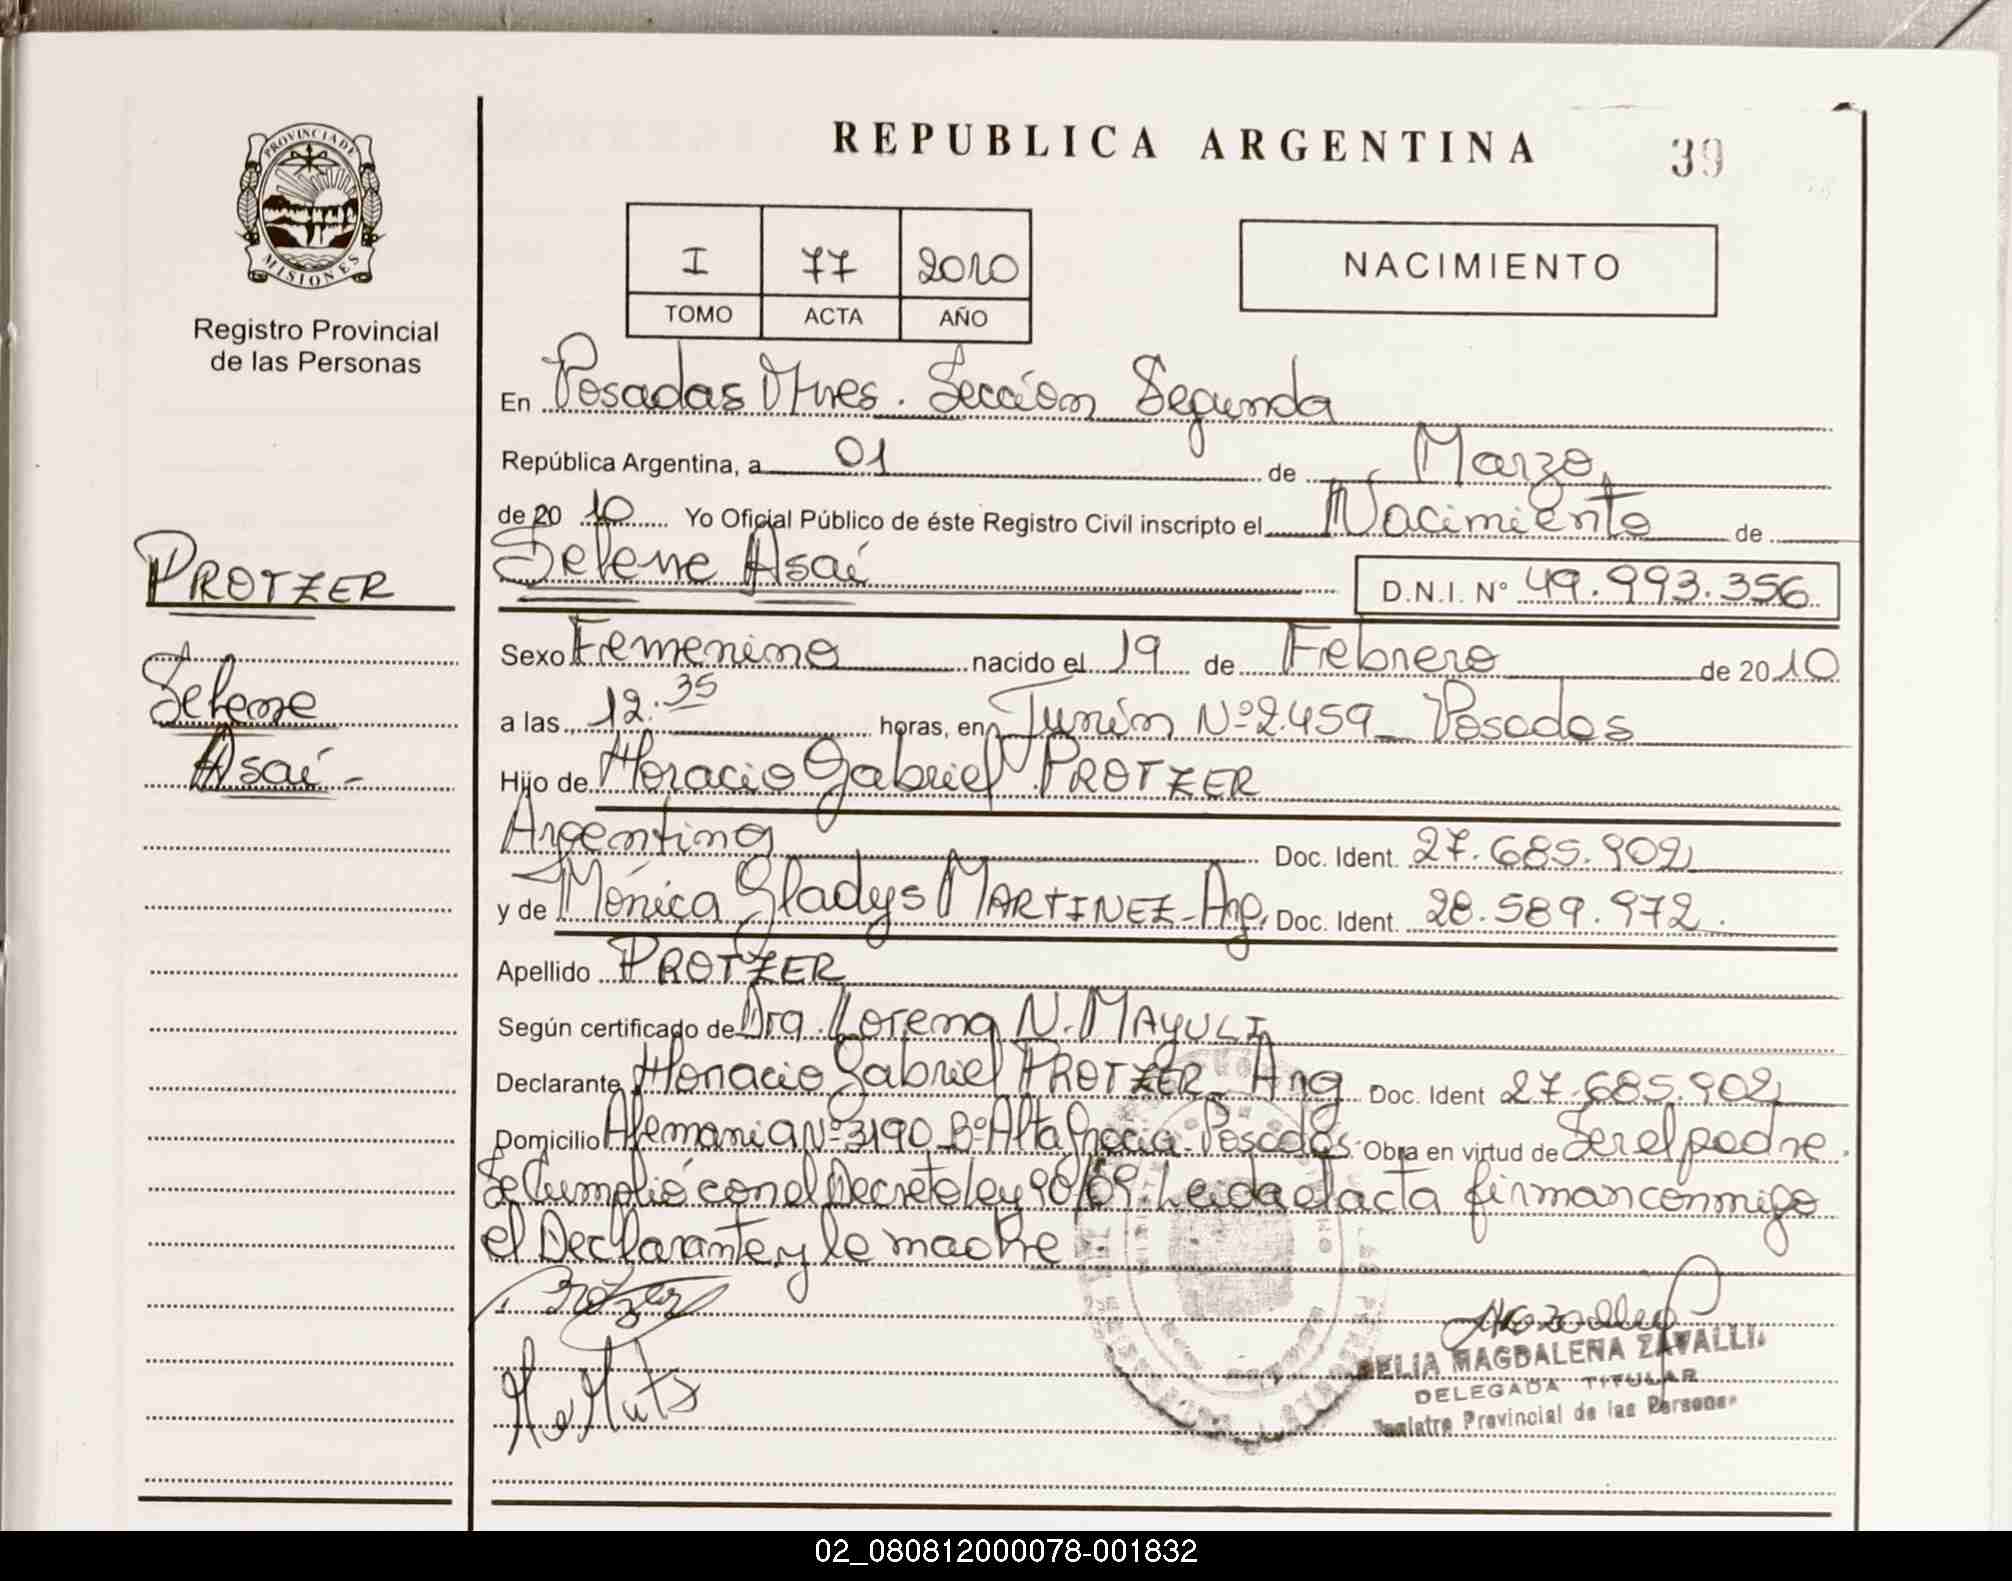 REPUBLICA ARGENTINA
39
PROVINCIA DE
MISIONES
Registro Provincial
de las Personas
I 77 2010
TOMO ACTA AÑO
NACIMIENTO
En Posadas Mnes. Sección Segunda
República Argentina, a 01 de Marzo
de 2010 Yo Oficial Público de éste Registro Civil inscripto el Nacimiento de
Selene Asaí D.N.I. Nº 49.993.356
PROTZER
Selene
Asaí -
Sexo Femenino nacido el 19 de Febrero de 2010
a las 12.35 horas, en Junín Nº 2.459_ Posadas
Hijo de Horacio Gabriel PROTZER
Argentino Doc. Ident. 27.685.902
y de Mónica Gladys MARTINEZ - Arg. Doc. Ident. 28.589.972.
Apellido PROTZER
Según certificado de Dra. Lorena N. MAYULI
Declarante Horacio Gabriel PROTZER_ Arg Doc. Ident 27.685.902
Domicilio Alemania Nº 3190_Bº Alta Gracia - Posadas. Obra en virtud de Ser el padre.
Se Cumplió con el Decreto ley 90/09. Leida el acta firman conmigo
el Declarante y la madre
Protzer
DELIA MAGDALENA ZAVALLI
DELEGADA TITULAR
Registro Provincial de las Personas
02_080812000078-001832